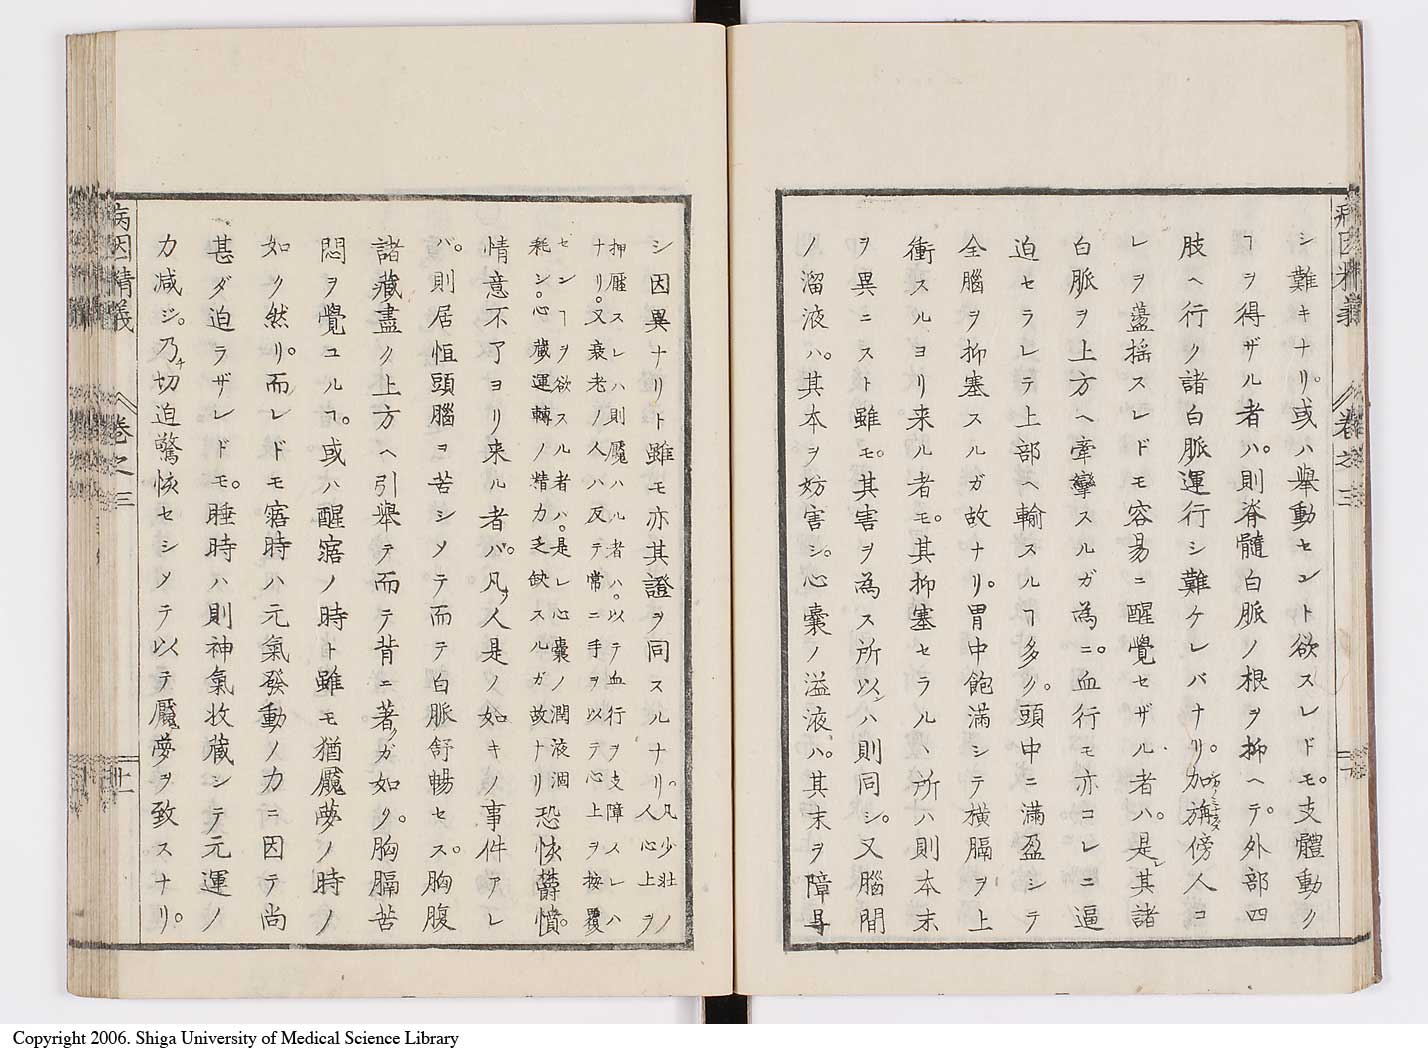 病因精義 卷之三
シ難キナリ。或ハ擧動セント欲スレドモ。支體動ク
ヿヲ得ザル者ハ。則脊髓白脈ノ根ヲ抑ヘテ。外部四
肢ヘ行ク諸白脈運行シ難ケレバナリ。加旃傍人コ
レヲ盪揺スレドモ容易ニ醒覺セザル者ハ。是レ其諸
白脈ヲ上方ヘ牽攣スルガ為ニ。血行モ亦コレニ逼
迫セラレテ上部ヘ輸スルヿ多ク。頭中ニ滿盈シテ
全腦ヲ抑塞スルガ故ナリ。胃中飽滿シテ横膈ヲ上
衝スルヨリ来ル者モ。其抑塞セラルヽ所ハ則本末
ヲ異ニスト雖モ。其害ヲ為ス所以ンハ則同シ。又腦間
ノ溜液ハ。其本ヲ妨害シ。心囊ノ溢液ハ。其末ヲ障㝵
シ因異ナリト雖モ亦其證ヲ同スルナリ。凡少壯ノ
人心上ヲ
押壓スレハ則魘ハル者ハ。以テ血行ヲ支障スレハ
ナリ。又衰老ノ人ハ反テ常ニ手ヲ以テ心上ヲ按覆
センヿヲ欲スル者ハ。是レ心囊ノ潤液涸
耗シ。心藏運轉ノ精力乏缺スルガ故ナリ
恐恢欝憤。
情意不了ヨリ来ル者バ。凡ソ人是ノ如キノ事件アレ
バ。則居恒頭腦ヲ苦シメテ而テ白脈舒暢セス。胸腹
諸藏盡ク上方ヘ引擧テ而テ背ニ著クガ如ク。胸膈苦
悶ヲ覺ユルヿ。或ハ醒寤ノ時ト雖モ猶魘夢ノ時ノ
如ク然リ。而レドモ寤時ハ元氣發動ノ力ニ因テ尚
甚ダ迫ラザレドモ。睡時ハ則神氣收蔵シテ元運ノ
力减ジ。乃チ切迫驚恢セシメテ以テ魘夢ヲ致スナリ。
病因精義 卷之三 十一
Copyright 2006. Shiga University of Medical Science Library